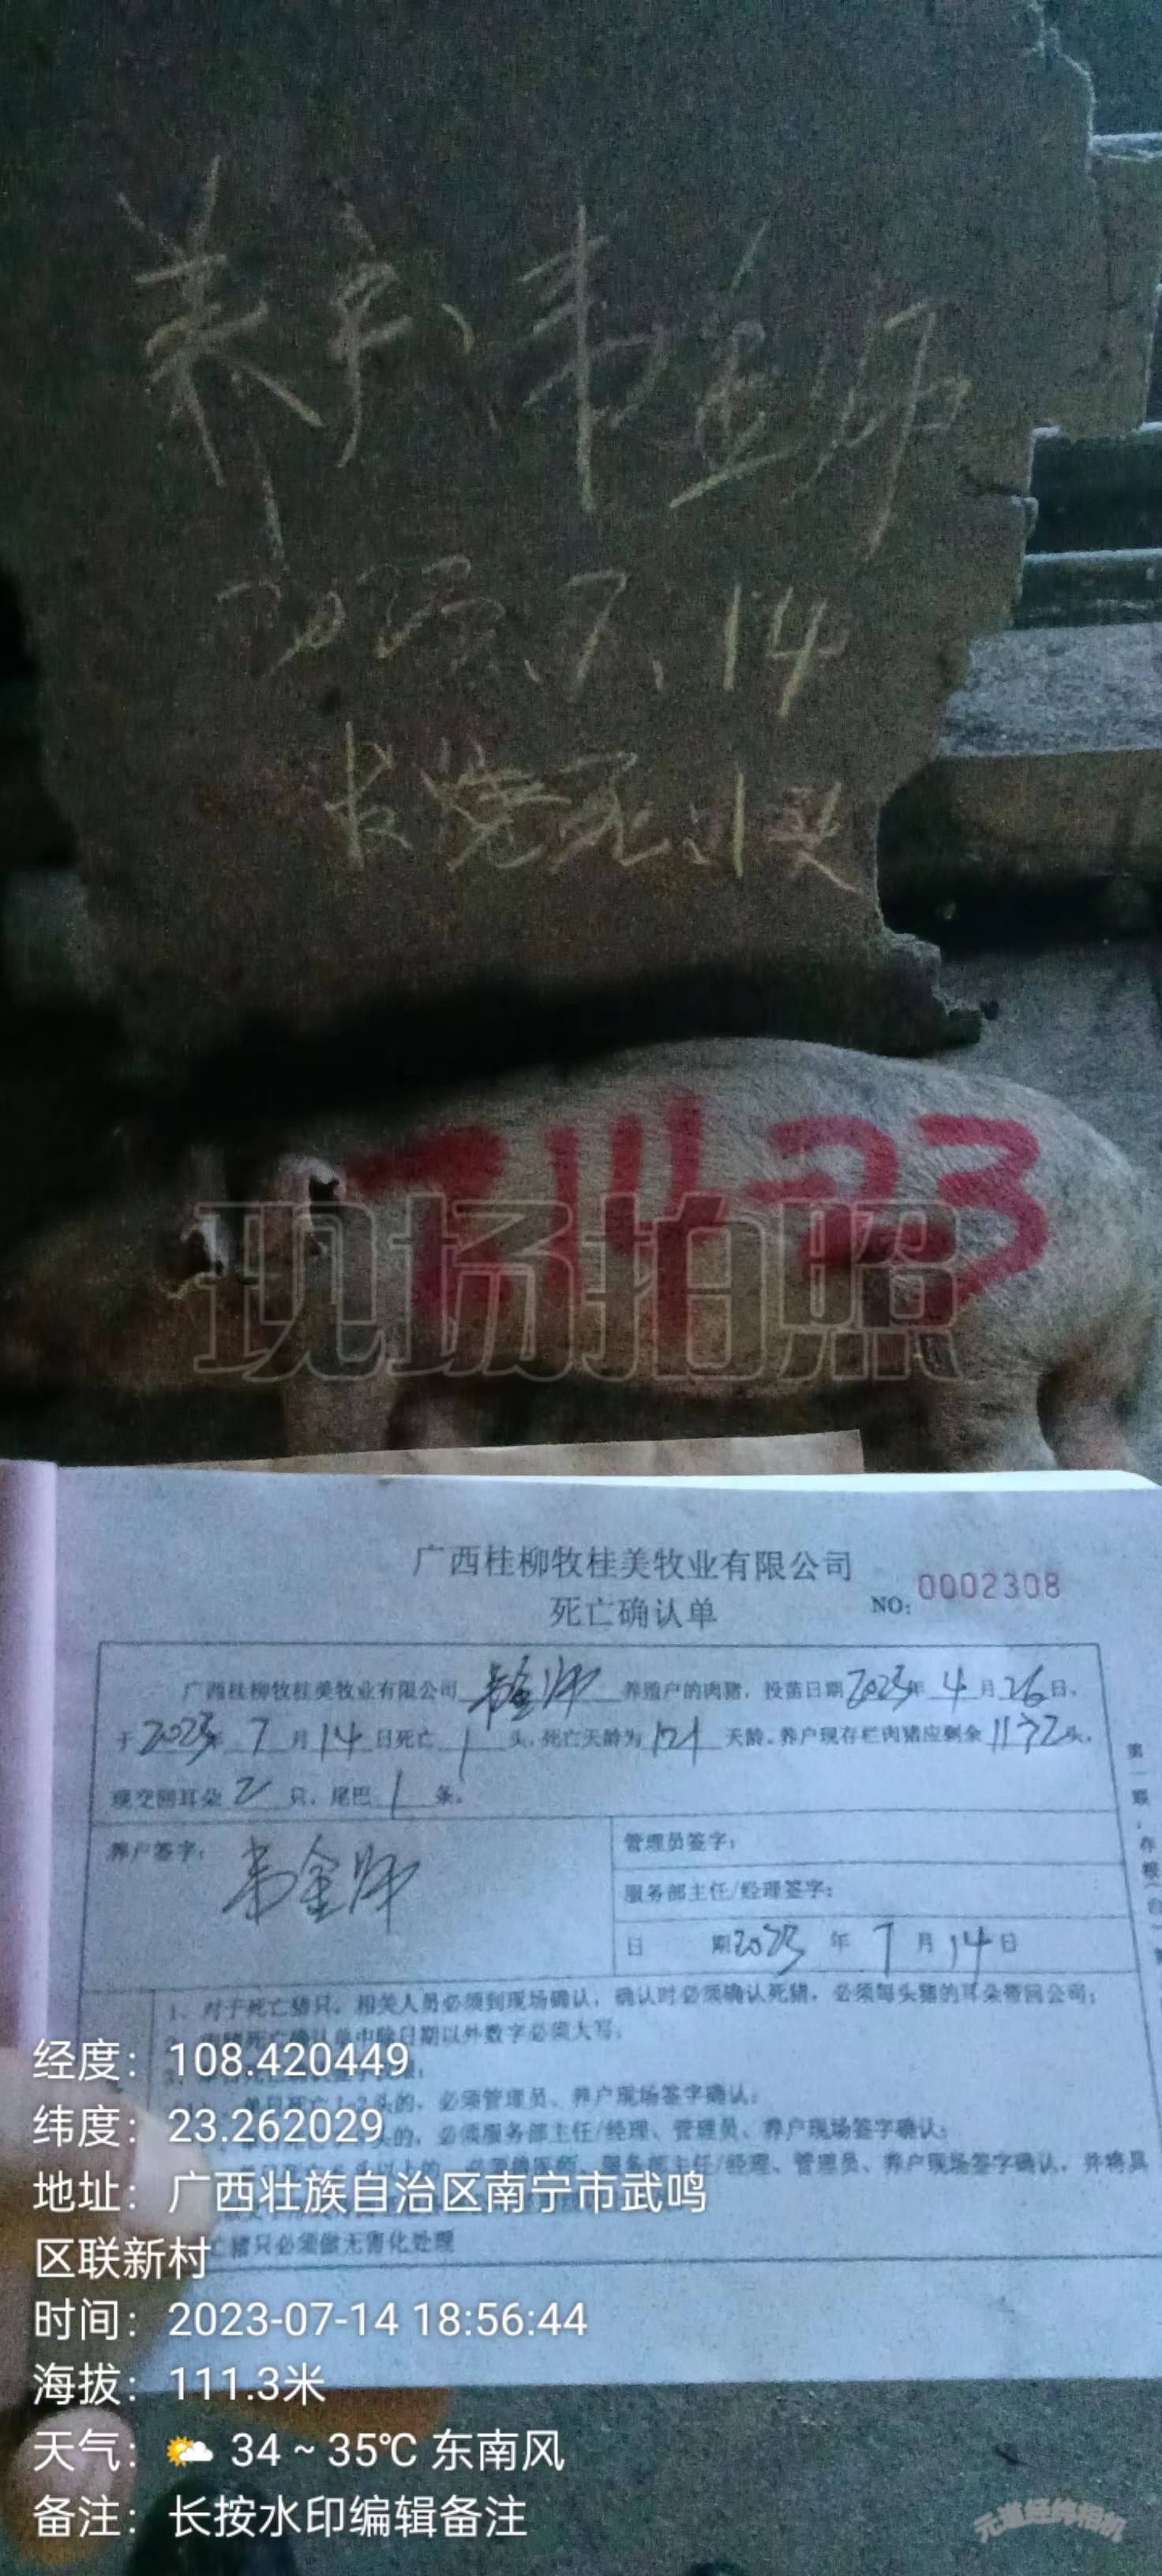 养户、韦金师
2023.7.14
长烧死亡1头
71423
现场拍照
广西桂柳牧桂美牧业有限公司
死亡确认单
NO: 0002308
广西桂柳牧桂美牧业有限公司 韦金师 养殖户的肉猪，投苗日期2023年4月26日，
于2023年7月14日死亡1头，死亡天龄为121天龄。养户现存栏肉猪应剩余1132头，
现交回耳朵2只，尾巴1条。
养户签字：韦金师
管理员签字：
服务部主任/经理签字：
日 期2023年7月14日
第一联
存
1、对于死亡猪只，相关人员必须到现场确认，确认时必须确认死猪，必须每头猪的耳朵带回公司；
死亡确认单中除日期以外数字必须大写；
头的，必须管理员、养户现场签字确认；
头的，必须服务部主任/经理、管理员、养户现场签字确认；
服务部主任/经理、管理员、养户现场签字确认，并将具
亡猪只必须做无害化处理
经度：108.420449
纬度：23.262029
地址：广西壮族自治区南宁市武鸣
区联新村
时间：2023-07-14 18:56:44
海拔：111.3米
天气：34～35℃ 东南风
备注：长按水印编辑备注
元道经纬相机